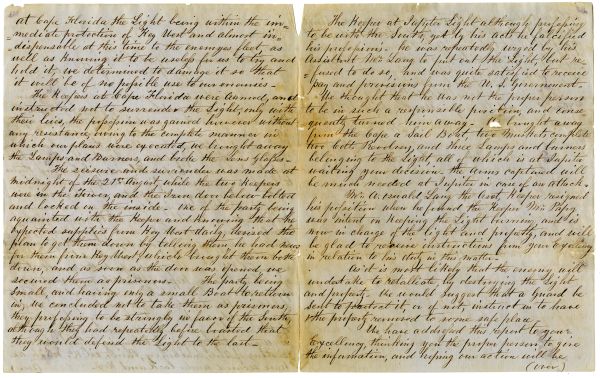 at Cape Florida the Light being within the im-
mediate protection of Key West and almost in-
dispensable at this time to the enemys fleet, as
well as knowing it to be useless for us to try and
hold it, we determined to damage it so that
it will be of no possible use to our enemies.
The Keepers at Cape Florida were armed, and
instructed not to surrender the Light, only with
their lives, the possession was gained however without
any resistance, owing to the complete manner in
which our plans were executed, we brought away
the Lamps and Burners, and broke the Lens Glasses
The seisure and surrender was made at
midnight of the 21st August, while the two Keepers
were in the Tower, and the Iron Door below bolted
and locked on the inside. One of the party being
aquainted with the Keeper and knowing that he
expected supplies from Key West daily, devised the
plan to get them down by telling them, he had news
for them from Key West, which brought them both
down, and as soon as the door was opened, we
secured them as prisoners. The party being
small, and having only a small Boat to return
in, we concluded not to take them as prisoners,
they professing to be strongly in favor of the South,
although they had repeatedly before boasted that
they would defend the Light to the last.
The Keeper at Jupiter Light although professing
to be with the South, yet by his acts he falsified
his professions. he was repeatedly urged by his
Assistant Mr Lang to put out the Light but re-
fused to do so, and was quite satisfied to receive
pay and provisions from the U. S. Government.
We thought that he was not the proper person
to be in such a responsible position, and conse
quently turned him away. We brought away
from the Cape a Sail Boat, two Muskets complete
two Colt Revolvers, and three Lamps and burners
belonging to the Light, all of which is at Jupiter
waiting your decision. the arms captured will
be much needed at Jupiter in case of an attack.
Mr. Oswald Lang the asst. Keeper resigned
his position when he found the Keeper Mr. Papy
was intent on keeping the Light burning, and is
now in charge of the light and property, and will
be glad to receive instructions from your Excellency
in relation to his duty in this matter.
As it is most likely that the enemy will
undertake to retalliate, by destroying the Light
and property. We would suggest that a guard be
sent to protect it, or if not, instruct us to have
the property removed to some safe place.
We have addressed this report to your
Excellency, thinking you the proper person, to give
the information, and hoping our action will be
(over)